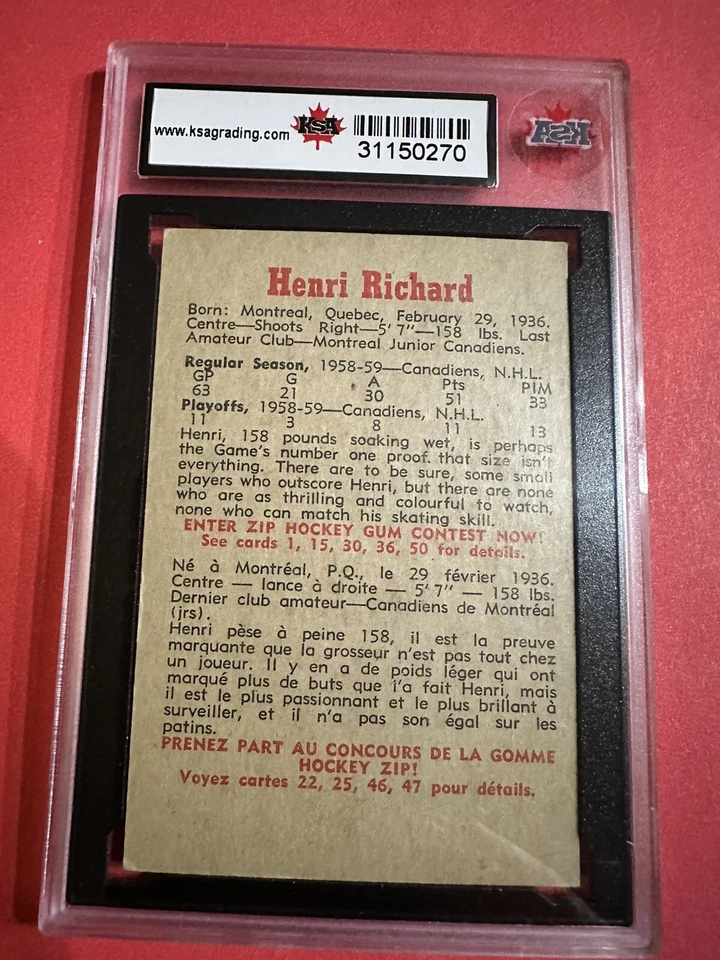 www.ksagrading.com KSA
31150270
KSA
Henri Richard
Born: Montreal, Quebec, February 29, 1936.
Centre—Shoots Right—5' 7"—158 lbs. Last
Amateur Club—Montreal Junior Canadiens.
Regular Season, 1958-59—Canadiens, N.H.L.
GP G A Pts PIM
63 21 30 51 33
Playoffs, 1958-59—Canadiens, N.H.L.
11 3 8 11 13
Henri, 158 pounds soaking wet, is perhaps
the Game's number one proof that size isn't
everything. There are to be sure, some small
players who outscore Henri, but there are none
who are as thrilling and colourful to watch,
none who can match his skating skill.
ENTER ZIP HOCKEY GUM CONTEST NOW!
See cards 1, 15, 30, 36, 50 for details.
Né à Montréal, P.Q., le 29 février 1936.
Centre — lance à droite — 5' 7" — 158 lbs.
Dernier club amateur—Canadiens de Montréal
(jrs).
Henri pèse à peine 158, il est la preuve
marquante que la grosseur n'est pas tout chez
un joueur. Il y en a de poids léger qui ont
marqué plus de buts que i'a fait Henri, mais
il est le plus passionnant et le plus brillant à
surveiller, et il n'a pas son égal sur les
patins.
PRENEZ PART AU CONCOURS DE LA GOMME
HOCKEY ZIP!
Voyez cartes 22, 25, 46, 47 pour détails.